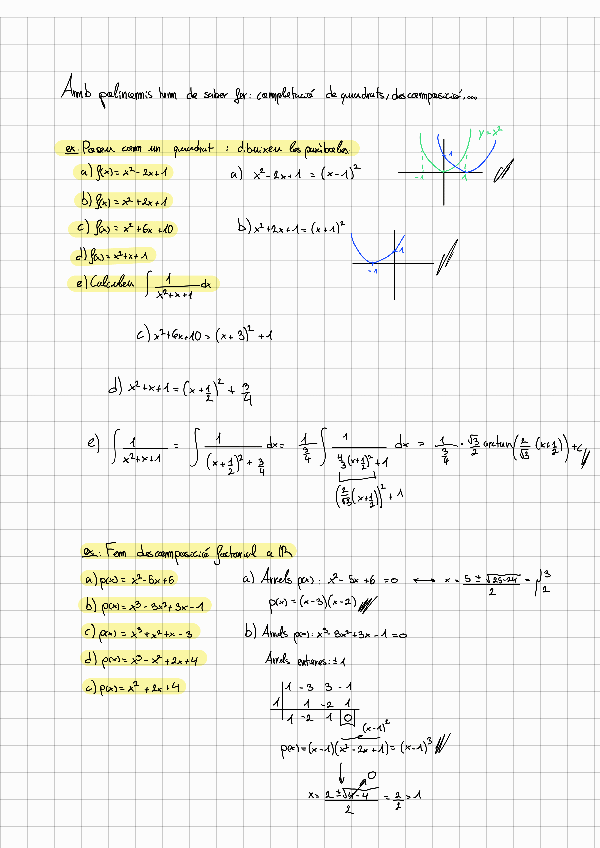 Amb polinomis hem de saber fer: completació de quadrats, descomposició,...
ex: Posem com un quadrat i dibuixem les paràboles
a) f(x) = x² - 2x + 1
b) f(x) = x² + 2x + 1
c) f(x) = x² + 6x + 10
d) f(x) = x² + x + 1
e) Calculeu ∫ 1/(x²+x+1) dx
a) x² - 2x + 1 = (x-1)²
y = x²
1
-1
1
b) x² + 2x + 1 = (x+1)²
1
-1
c) x² + 6x + 10 = (x+3)² + 1
d) x² + x + 1 = (x + 1/2)² + 3/4
e) ∫ 1/(x²+x+1) = ∫ 1/((x+1/2)² + 3/4) dx = 1/(3/4) ∫ 1/(4/3 (x+1/2)² + 1) dx = 1/(3/4) · √3/2 arctan(2/√3 (x+1/2)) + C
(2/√3 (x+1/2))² + 1
ex: Fem descomposició factorial a ℝ
a) p(x) = x² - 5x + 6
b) p(x) = x³ - 3x² + 3x - 1
c) p(x) = x³ + x² + x - 3
d) p(x) = x³ - x² + 2x + 4
e) p(x) = x² + 2x + 4
a) Arrels p(x): x² - 5x + 6 = 0 ⟷ x = (5 ± √(25-24))/2 = 3
2
p(x) = (x-3)(x-2)
b) Arrels p(x): x³ - 3x² + 3x - 1 = 0
Arrels enteres: ±1
1 -3 3 -1
1 1 -2 1
1 -2 1 0
(x-1)²
p(x) = (x-1)(x² - 2x + 1) = (x-1)³
0
x = (2 ± √(4-4))/2 = 2/2 = 1